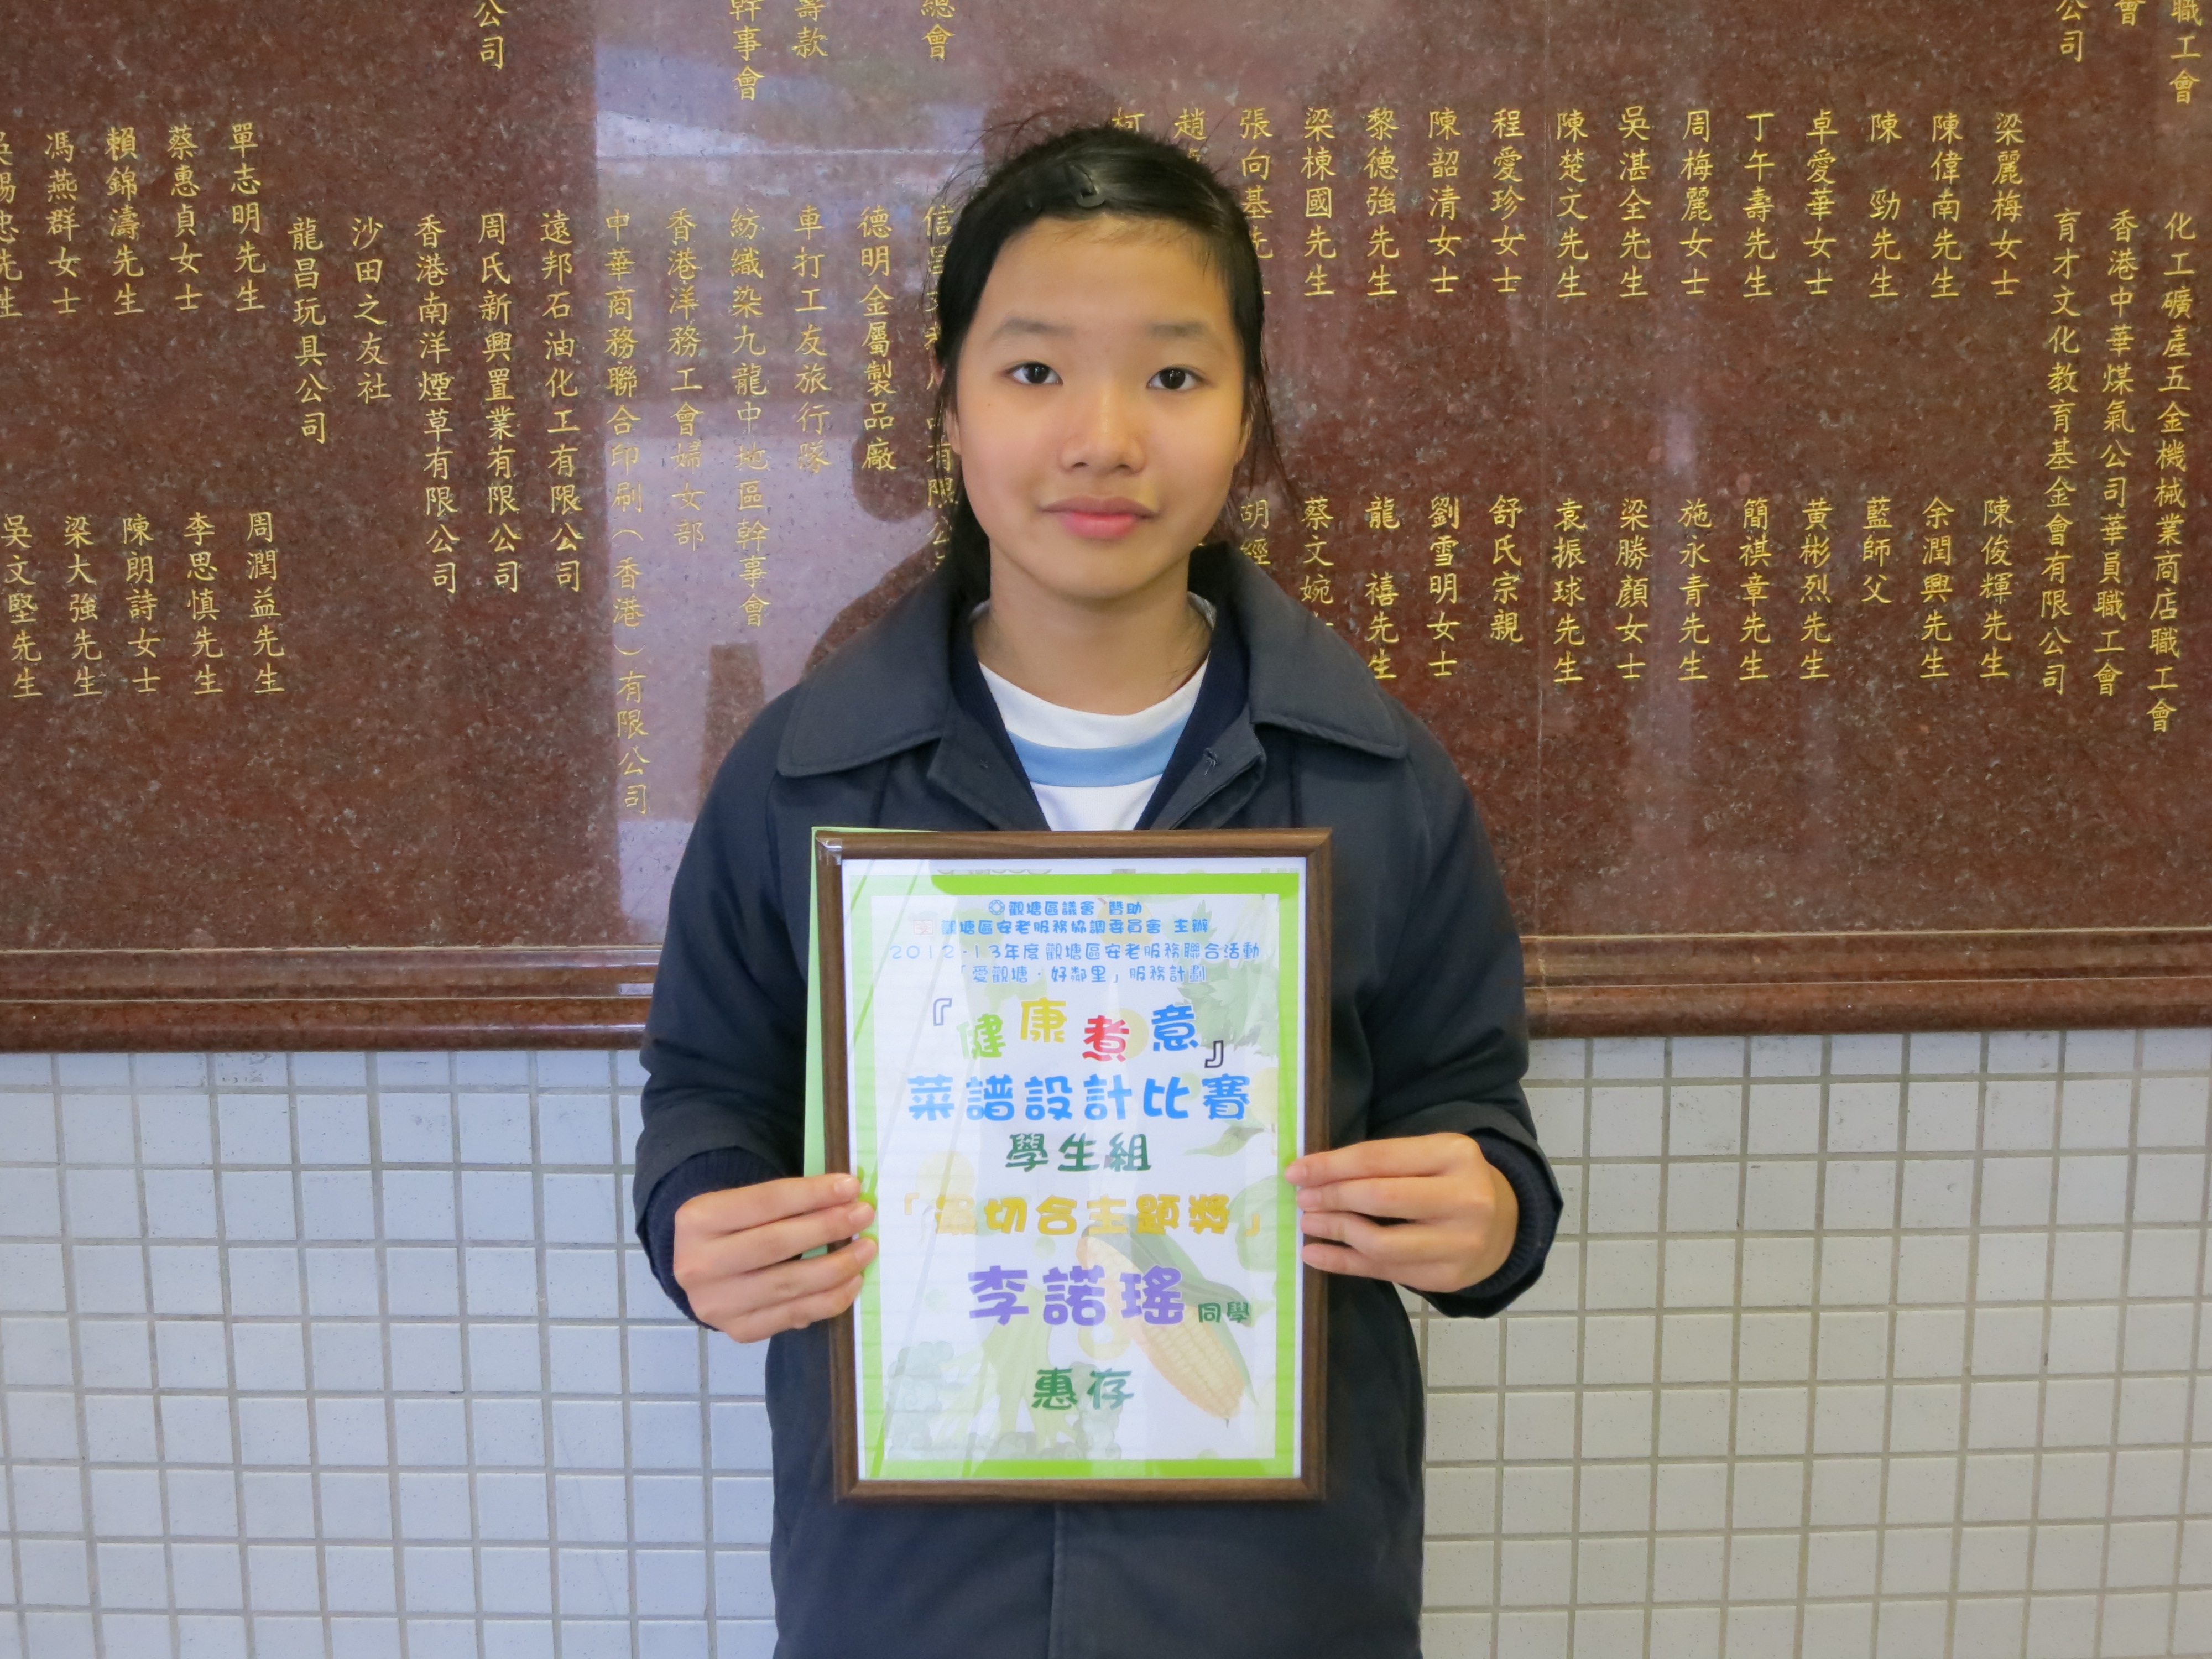 職工會
會
公司
總會
籌款
幹事會
公司
梁麗梅女士
陳偉南先生
陳 勁先生
卓愛華女士
丁午壽先生
周梅麗女士
吳湛全先生
陳楚文先生
程愛珍女士
陳韶清女士
黎德強先生
梁棟國先生
張向基先
趙
柯
單志明先生
蔡惠貞女士
賴錦濤先生
馮燕群女士
吳錫忠先生
化工礦產五金機械業商店職工會
香港中華煤氣公司華員職工會
育才文化教育基金會有限公司
德明金屬製品廠
車打工友旅行隊
紡織染九龍中地區幹事會
香港洋務工會婦女部
中華商務聯合印刷(香港)有限公司
遠邦石油化工有限公司
周氏新興置業有限公司
香港南洋煙草有限公司
沙田之友社
龍昌玩具公司
陳俊輝先生
余潤興先生
藍師父
黃彬烈先生
簡祺章先生
施永青先生
梁勝顏女士
袁振球先生
舒氏宗親
劉雪明女士
龍 禧先生
蔡文婉
胡經
周潤益先生
李思慎先生
陳朗詩女士
梁大強先生
吳文堅先生
觀塘區議會 贊助
觀塘區安老服務協調委員會 主辦
2012-13年度觀塘區安老服務聯合活動
「愛觀塘·好鄰里」服務計劃
『健康煮意』
菜譜設計比賽
學生組
「最切合主題獎」
李諾瑤 同學
惠存